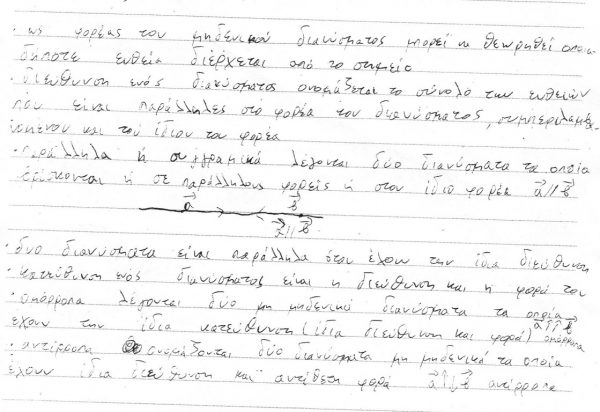 · ως φορέας του μηδενικού διανύσματος μπορεί να θεωρηθεί οποια-
δήποτε ευθεία διέρχεται από το σημείο
· διεύθυνση ενός διανύσματος ονομάζεται το σύνολο των ευθειών
που είναι παράλληλες στο φορέα του διανύσματος, συμπεριλαμβα-
νομένου και του ίδιου του φορέα
· παράλληλα ή συγγραμικά λέγονται δύο διανύσματα τα οποία
βρίσκονται ή σε παράλληλους φορείς ή στον ίδιο φορέα a⃗//b⃗
a⃗ b⃗
a⃗//b⃗
· δυο διανύσματα είναι παράλληλα όταν έχουν την ίδια διεύθυνση
· κατεύθυνση ενός διανύσματος είναι η διεύθυνση και η φορά του
· ομόρροπα λέγονται δύο μη μηδενικά διανύσματα τα οποία
έχουν την ίδια κατεύθυνση (ίδια διεύθυνση και φορά) a⃗↑↑b⃗ ομόρροπα
· αντίρροπα ονομάζονται δύο διανύσματα μη μηδενικά τα οποία
έχουν ίδια διεύθυνση και αντίθετη φορά a⃗↑↓b⃗ αντίρροπα